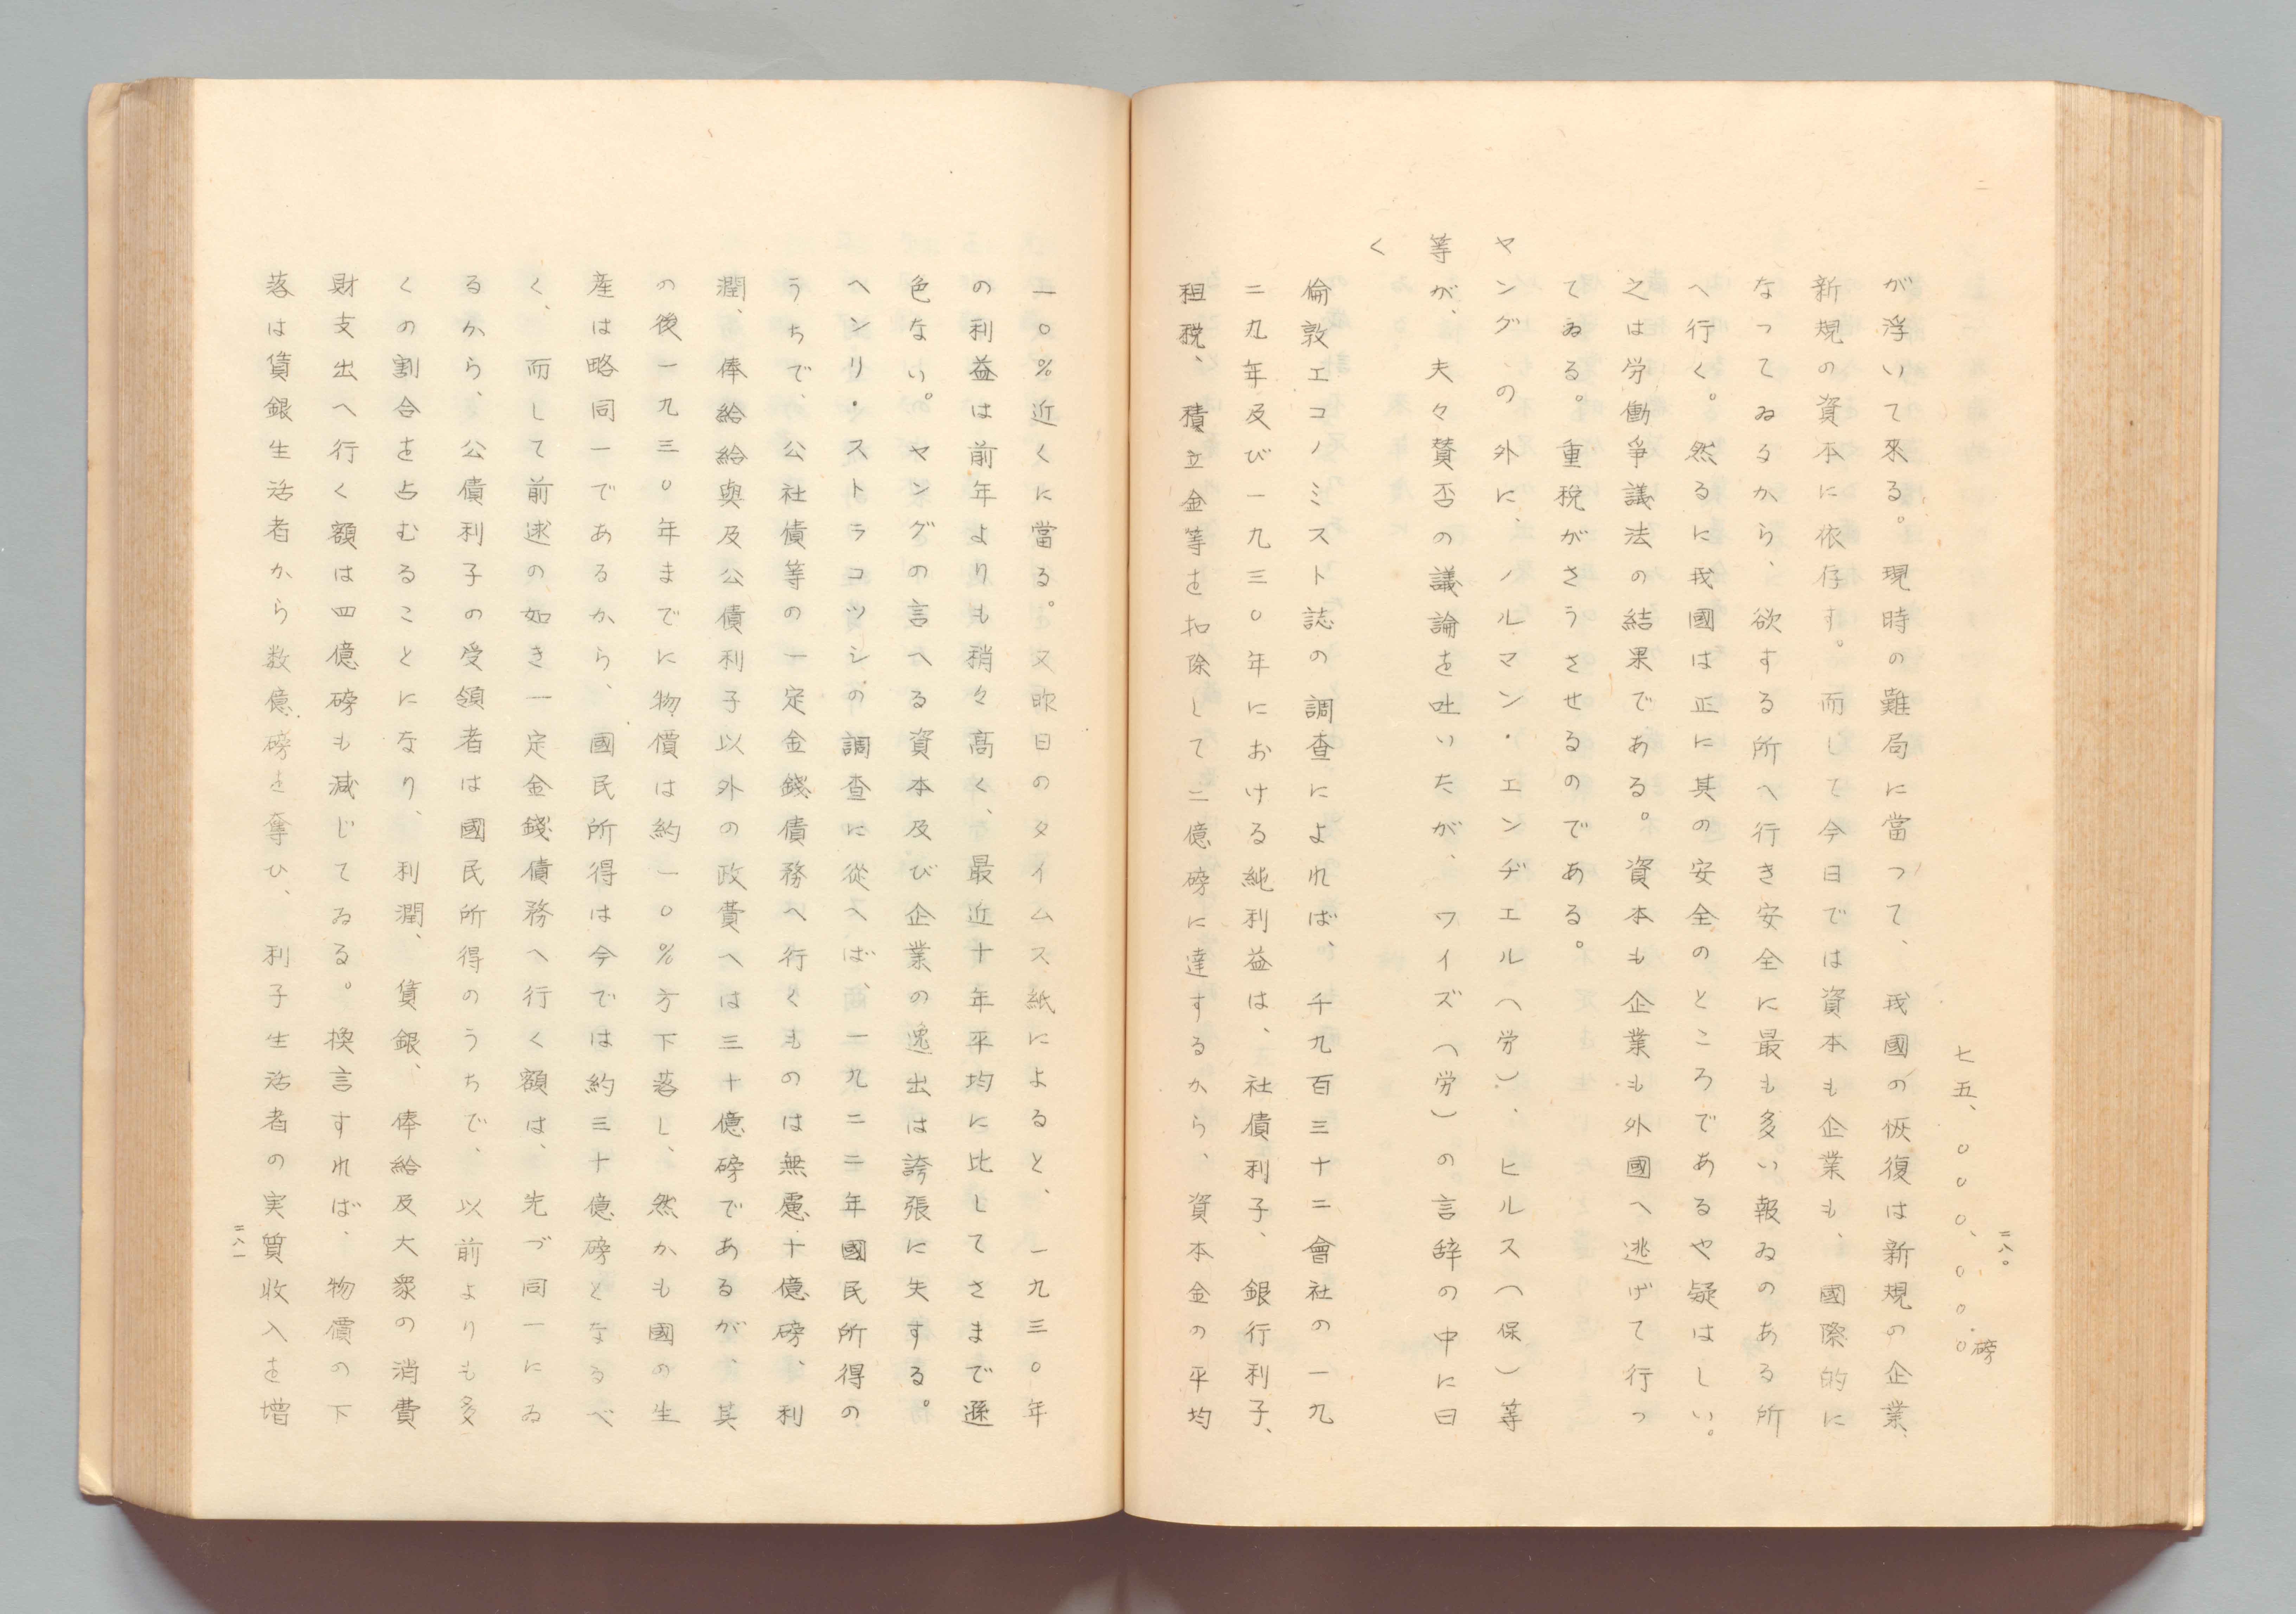 二八〇
七五、〇〇〇、〇〇〇磅
が浮いて來る。現時の難局に當つて、我國の恢復は新規の企業、
新規の資本に依存す。而して今日では資本も企業も、國際的に
なつてゐるから、欲する所へ行き安全に最も多い報ゐのある所
へ行く。然るに我國は正に其の安全のところであるや疑はしい。
之は労働爭議法の結果である。資本も企業も外國へ逃げて行つ
てゐる。重税がさうさせるのである。
ヤングの外に、ノルマン・エンヂエル（労）、ヒルス（保）等
等が、夫々賛否の議論を吐いたが、ワイズ（労）の言辞の中に曰
く
倫敦エコノミスト誌の調査によれば、千九百三十二會社の一九
二九年及び一九三〇年における純利益は、社債利子、銀行利子、
租税、積立金等を扣除して二億磅に達するから、資本金の平均
一〇％近くに當る。又昨日のタイムス紙によると、一九三〇年
の利益は前年よりも稍々高く、最近十年平均に比してさまで遜
色ない。ヤングの言へる資本及び企業の逸出は誇張に失する。
ヘンリ・ストラコツシの調査に從へば、一九二二年國民所得の
うちで、公社債等の一定金錢債務へ行くものは無慮十億磅、利
潤、俸給給與及公債利子以外の政費へは三十億磅であるが、其
の後一九三〇年までに物價は約一〇％方下落し、然かも國の生
産は略同一であるから、國民所得は今では約三十億磅となるべ
く、而して前逑の如き一定金錢債務へ行く額は、先づ同一にゐ
るから、公債利子の受領者は國民所得のうちで、以前よりも多
くの割合を占むることになり、利潤、賃銀、俸給及大衆の消費
財支出へ行く額は四億磅も減じてゐる。換言すれば、物價の下
落は賃銀生活者から数億磅を奪ひ、利子生活者の実質收入を増
二八一